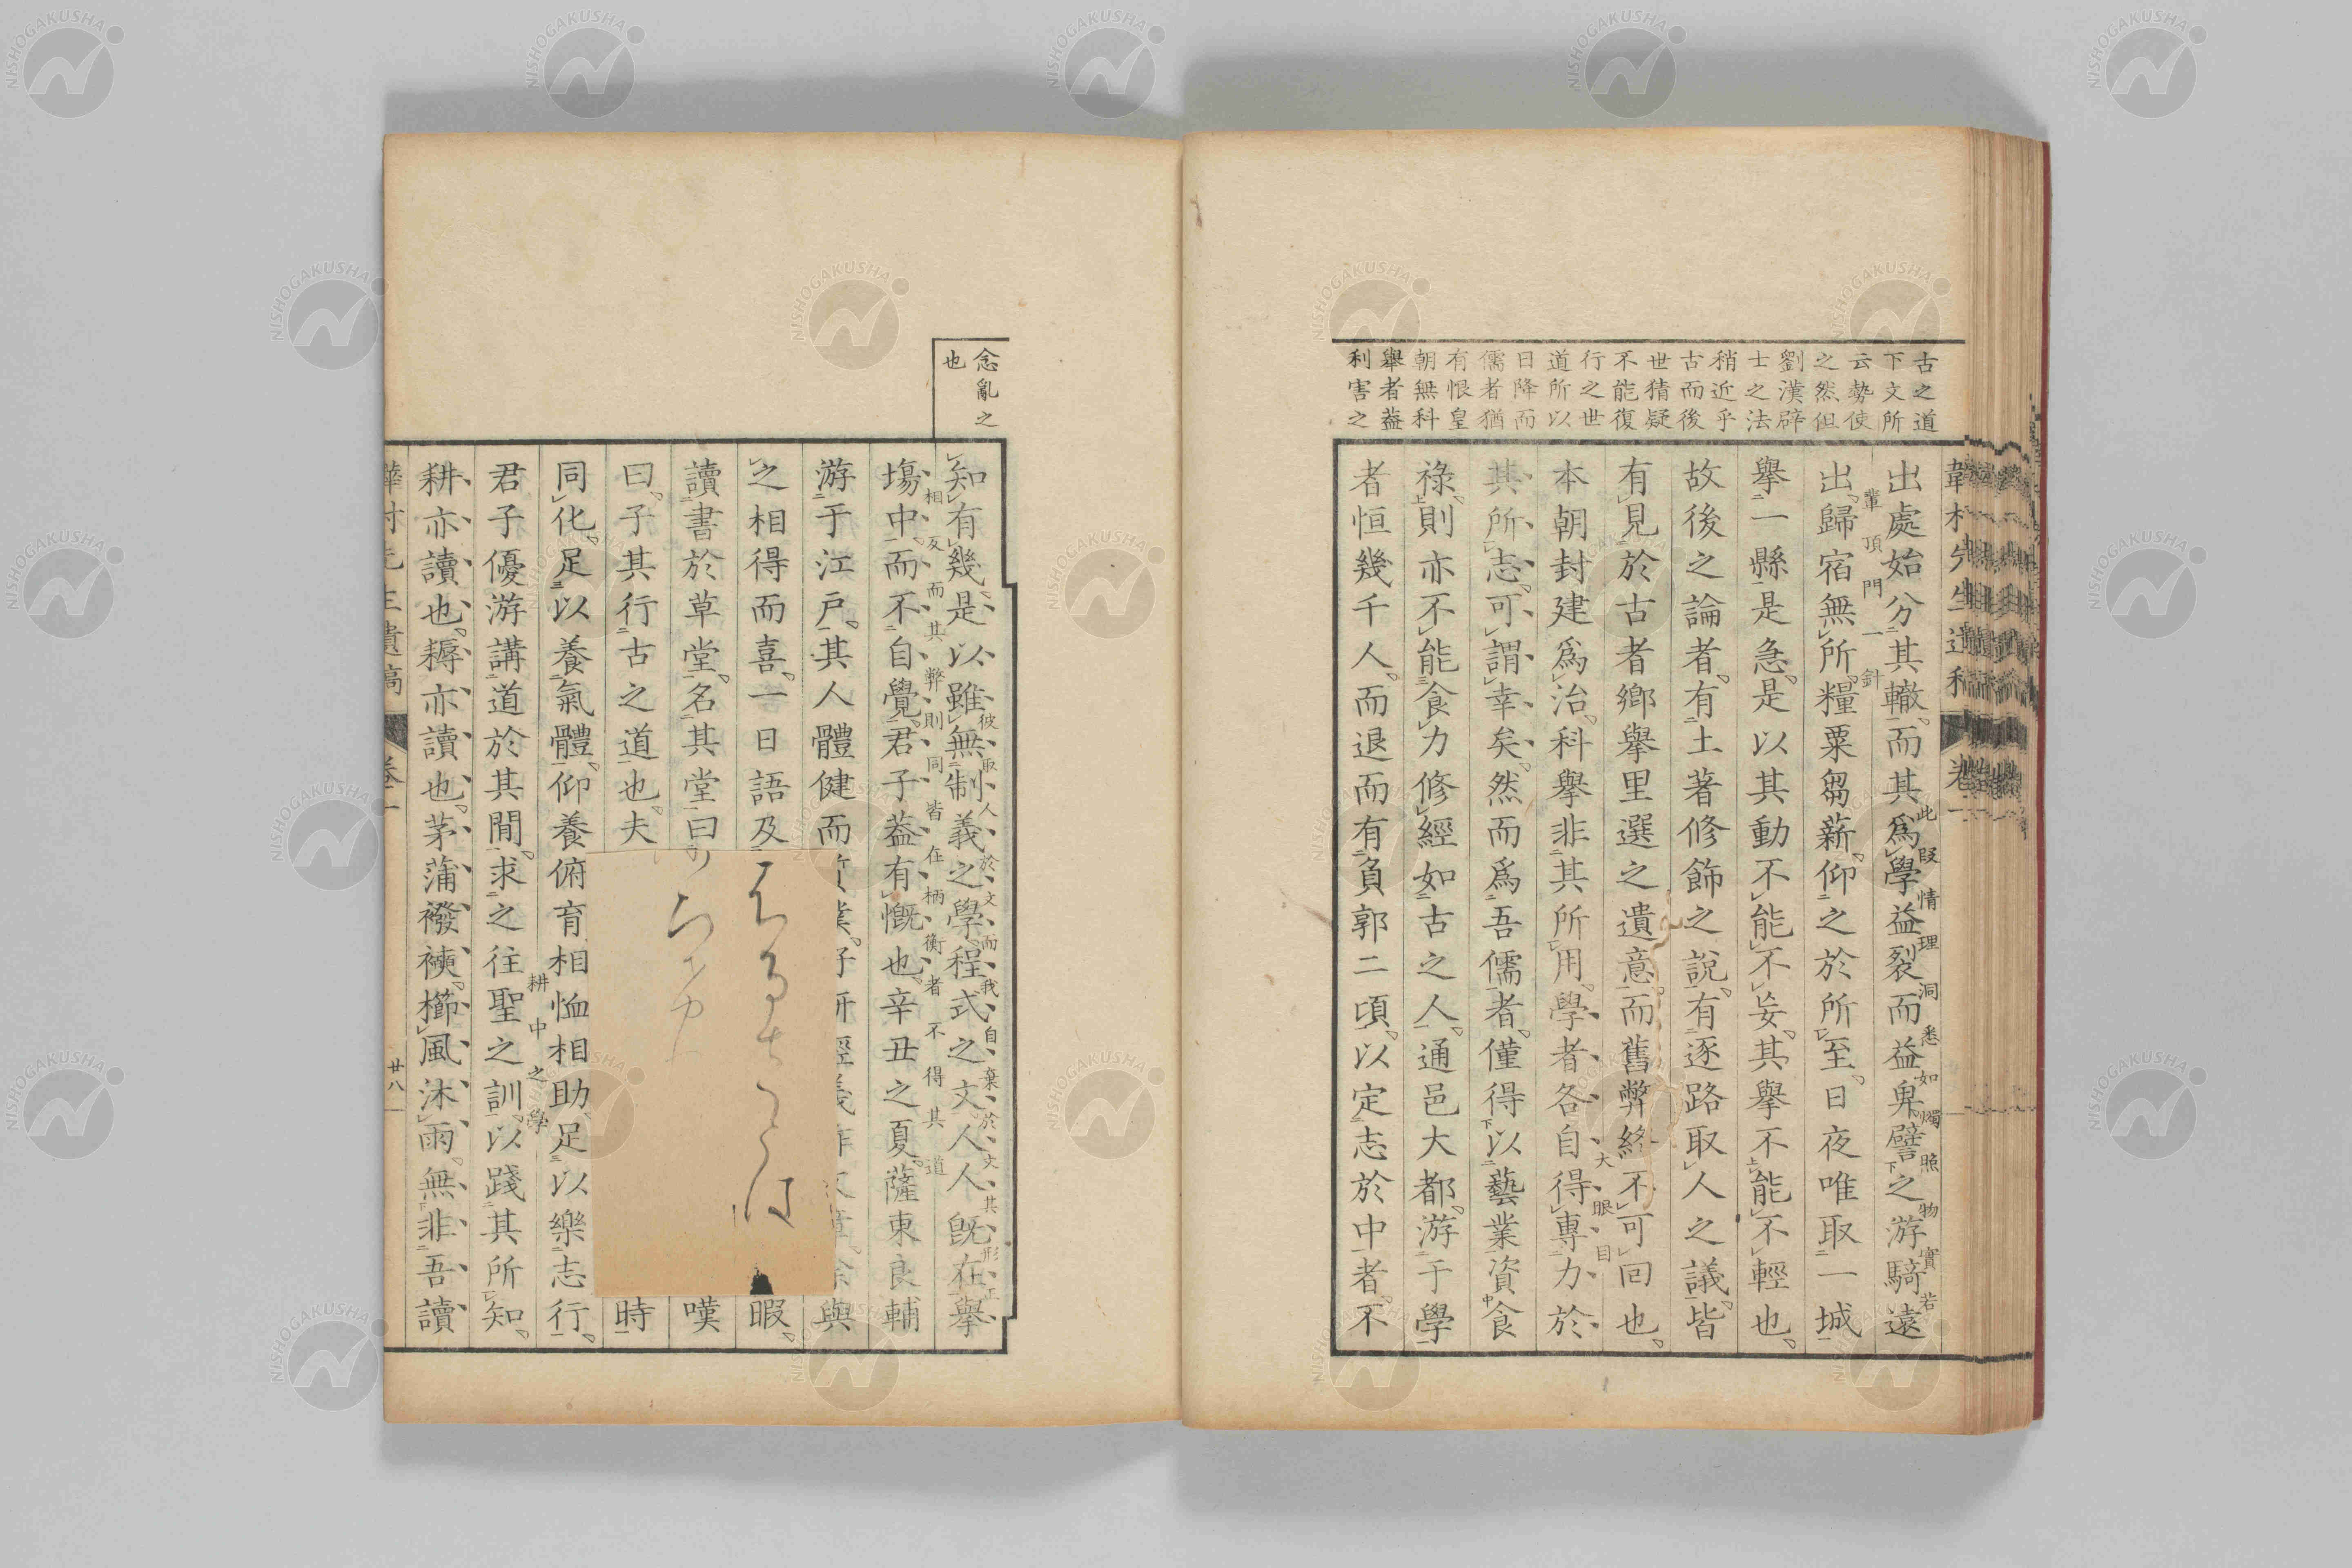 古之道
下文所
云勢使
之然但
劉漢辟
士之法
稍近乎
古而後
世猜疑
不能復
行之世
道所以
日降而
儒者猶
有恨皇
朝無科
舉者葢
利害之
出處始分其轍而其爲學益裂而益卑譬之游騎遠
此段情理洞悉如燭照物實若
出歸宿無所糧粟芻薪仰之於所至日夜唯取一城
輩頂門一針
舉一縣是急是以其動不能不妄其舉不能不輕也
故後之論者有土著修飾之說有逐路取人之議皆
有見於古者鄉舉里選之遺意而舊弊終不可回也
本朝封建爲治科舉非其所用學者各自得專力於
大眼目
其所志可謂幸矣然而爲吾儒者僅得以藝業資食
祿則亦不能食力修經如古之人通邑大都游于學
者恒幾千人而退而有負郭二頃以定志於中者不
念亂之
也
知有幾是以雖無制義之學程式之文人人旣在舉
彼取人於文而我自棄於文其形正
塲中而不自覺君子葢有慨也辛丑之夏薩東良輔
相反而其弊則同皆在柄衡者不得其道
游于江戶其人體健而
與
之相得而喜一日語及
暇
讀書於草堂名其堂曰
嘆
曰子其行古之道也夫
時
同化足以養氣體仰養俯育相恤相助足以樂志行
君子優游講道於其間求之往聖之訓以踐其所知
耕中之學
耕亦讀也耨亦讀也茅蒲襏襫櫛風沐雨無非吾讀
廿八
NISHOGAKUSHA